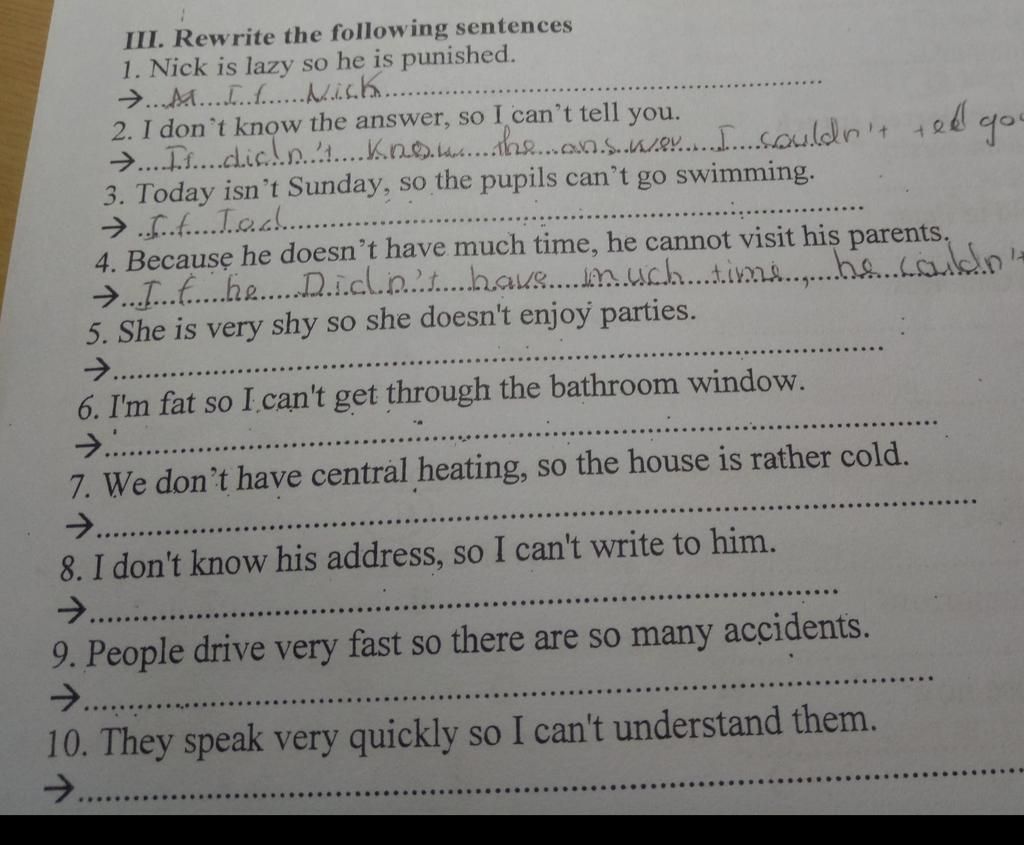 III. Rewrite the following sentences
1. Nick is lazy so he is punished.
→ If Nick
2. I don't know the answer, so I can't tell you.
→ If didn't know the answer I couldn't tell you
3. Today isn't Sunday, so the pupils can't go swimming.
→ If Tod
4. Because he doesn't have much time, he cannot visit his parents.
→ If he Didn't have much time, he couldn't
5. She is very shy so she doesn't enjoy parties.
→
6. I'm fat so I can't get through the bathroom window.
→
7. We don't have central heating, so the house is rather cold.
→
8. I don't know his address, so I can't write to him.
→
9. People drive very fast so there are so many accidents.
→
10. They speak very quickly so I can't understand them.
→